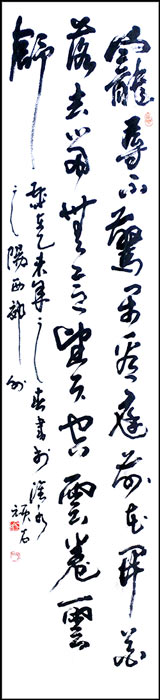 寵辱不驚看庭前花開花
落去留無意望天空雲卷雲
舒
歲在乙未年之春書於漢水
之陽西郊
頑石